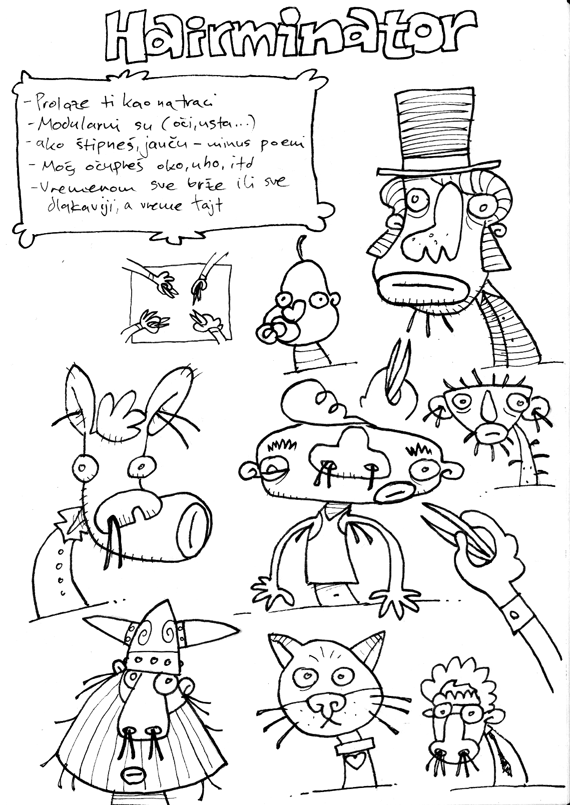 Hairminator
- Prolaze ti kao na traci
- Modularni su (oči, usta...)
- ako štipneš, jauču - minus poeni
- Mož, očupneš oko, uho, itd
- Vremenom sve brže ili sve
dlakaviji, a vreme fajt